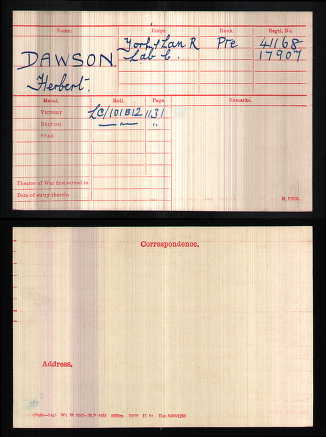 Name. Corps. Rank. Regtl. No.
DAWSON York & Lan R Pte 41168
Herbert. Lab C. " 17907
Medal. Roll. Page. Remarks.
Victory LC/101B12 1131
British " "
Star
Theatre of War first served in
Date of entry therein
Correspondence.
Address.